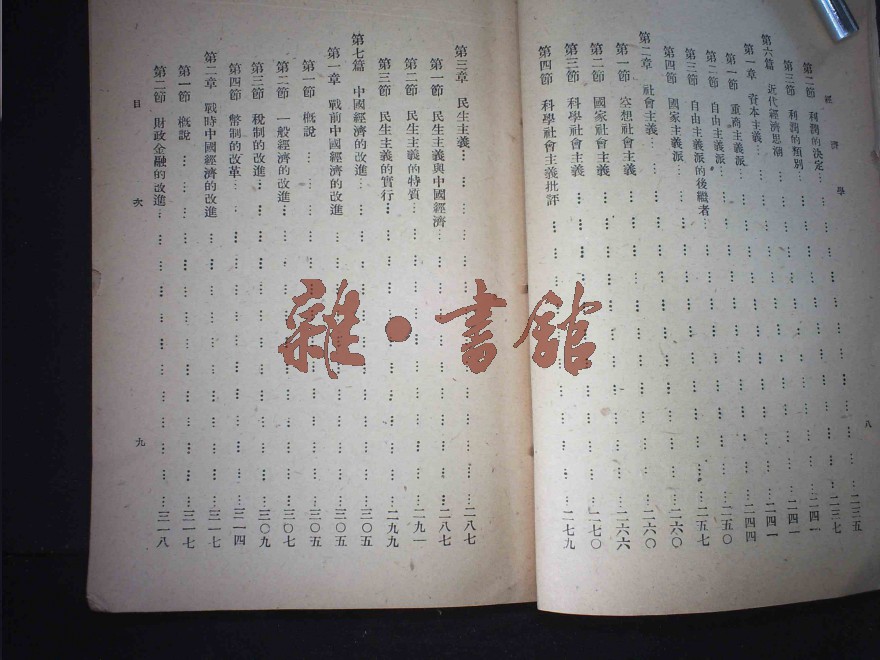 經濟學
八
第二節 利潤的決定……二三五
第三節 利潤的類別……二三七
第六篇 近代經濟思潮……二四一
第一章 資本主義……二四一
第一節 重商主義派……二四一
第二節 自由主義派……二四四
第三節 自由主義派的後繼者……二五〇
第四節 國家主義派……二五七
第二章 社會主義……二六〇
第一節 空想社會主義……二六〇
第二節 國家社會主義……二六六
第三節 科學社會主義……二七〇
第四節 科學社會主義批評……二七九
第三章 民生主義……二八七
第一節 民生主義與中國經濟……二八七
第二節 民生主義的特質……二九一
第三節 民生主義的實行……二九九
第七篇 中國經濟的改進……三〇五
第一章 戰前中國經濟的改進……三〇五
第一節 概說……三〇五
第二節 一般經濟的改進……三〇七
第三節 稅制的改進……三〇九
第四節 幣制的改革……三一四
第二章 戰時中國經濟的改進……三一七
第一節 概說……三一七
第二節 財政金融的改進……三一八
目次
九
雜•書舘